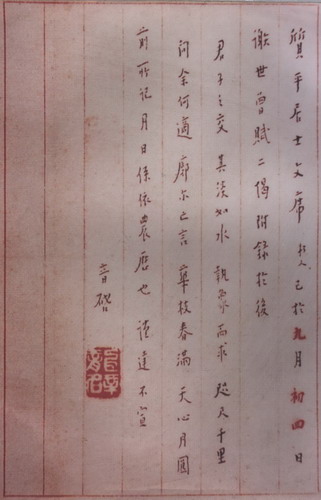 質平居士文席朽人已於九月初四日
謝世曾賦二偈附錄於後
君子之交其淡如水執象而求咫尺千里
問余何適廓爾亡言華枝春滿天心月圓
前所記月日係依農曆也謹達不宣
音啓